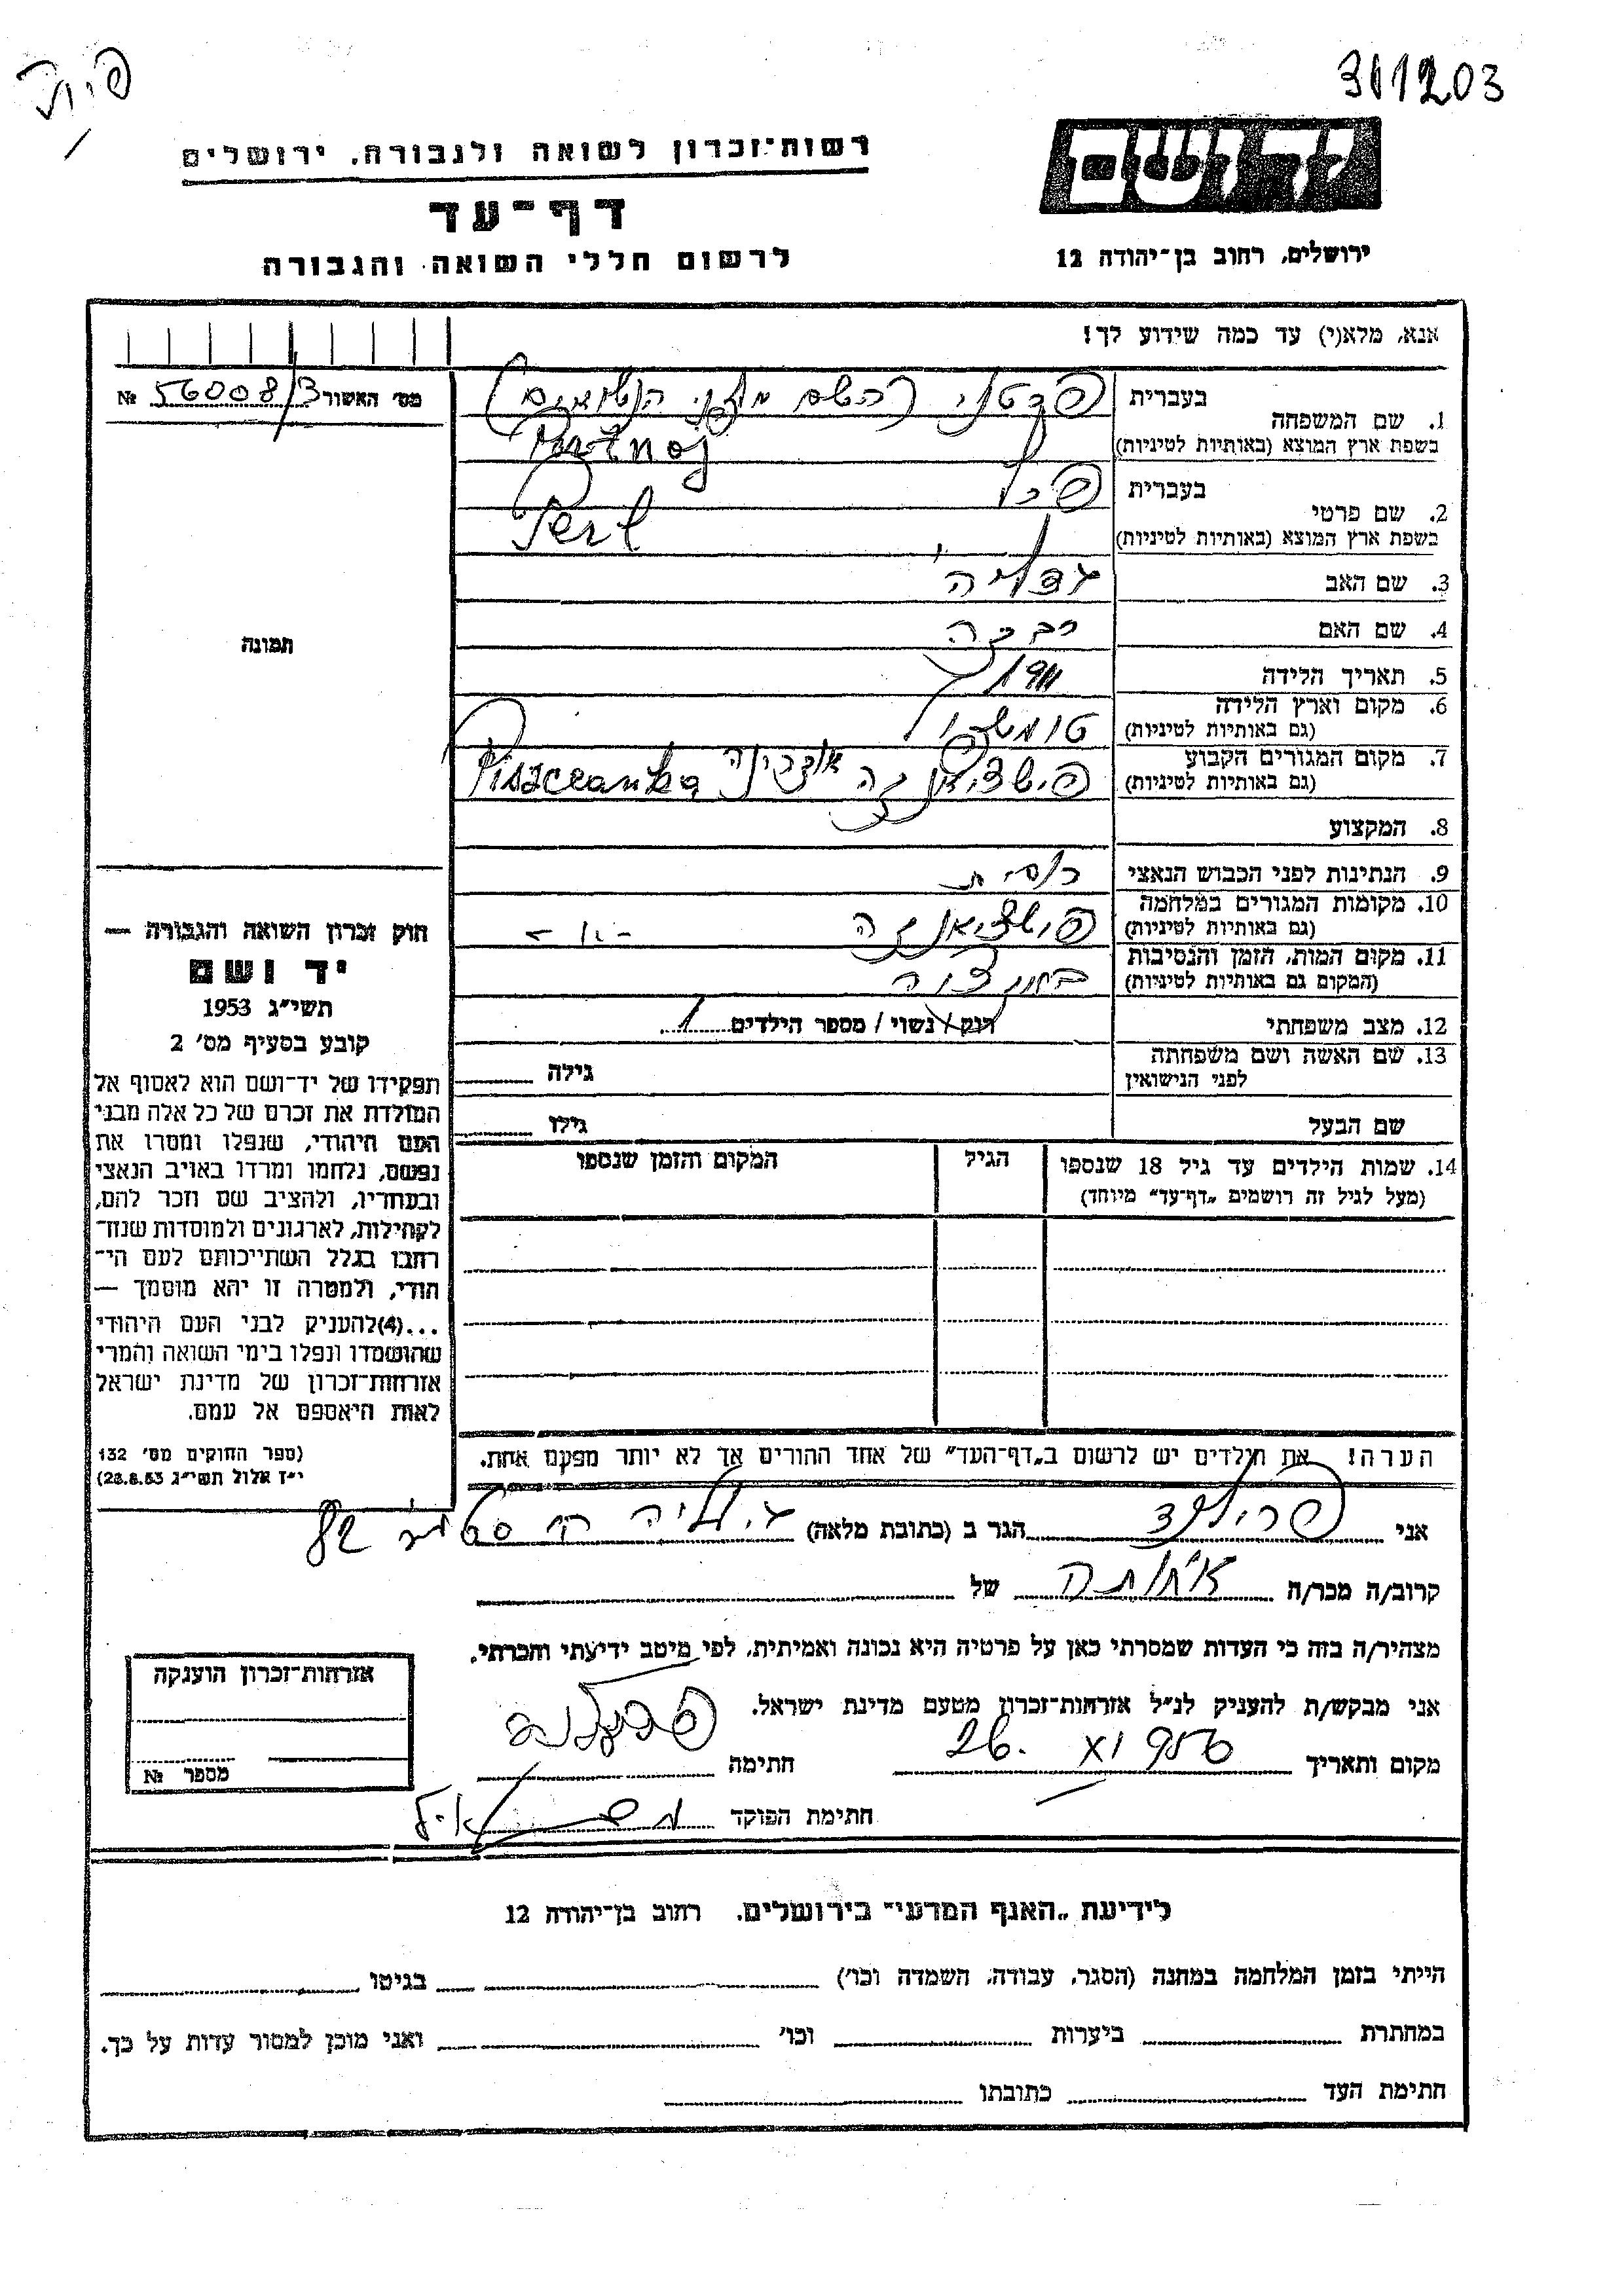 311203
יד ושם
ירושלים, רחוב בן-יהודה 12
רשות-זכרון לשואה ולגבורה, ירושלים
דף-עד
לרשום חללי השואה והגבורה
אנא, מלא(י) עד כמה שידוע לך!
מס' האשור 56008/3 №
1. שם המשפחה
בעברית (השם מלפני הנשואים)
בשפת ארץ המוצא (באותיות לטיניות) Portnoj
2. שם פרטי
בעברית פרל
בשפת ארץ המוצא (באותיות לטיניות) Perl
3. שם האב גדליה
4. שם האם רבקה
5. תאריך הלידה 1911
6. מקום וארץ הלידה
(גם באותיות לטיניות)
7. מקום המגורים הקבוע
(גם באותיות לטיניות) פישצ'אנקה אוקרינה Piszczanka
8. המקצוע
9. הנתינות לפני הכבוש הנאצי רוסית
10. מקומות המגורים במלחמה
(גם באותיות לטיניות) פישצ'אנקה -"-
11. מקום המות, הזמן והנסיבות
(המקום גם באותיות לטיניות)
12. מצב משפחתי רווק / נשוי / מספר הילדים 1
13. שם האשה ושם משפחתה
לפני הנישואין גילה
שם הבעל גילו
14. שמות הילדים עד גיל 18 שנספו
(מעל לגיל זה רושמים „דף-עד" מיוחד)
הגיל
המקום והזמן שנספו
הערה! את הילדים יש לרשום ב„דף-העד" של אחד ההורים אך לא יותר מפעם אחת.
תמונה
חוק זכרון השואה והגבורה —
יד ושם
תשי"ג 1953
קובע בסעיף מס' 2
תפקידו של יד-ושם הוא לאסוף אל
המולדת את זכרם של כל אלה מבני
העם היהודי, שנפלו ומסרו את
נפשם, נלחמו ומרדו באויב הנאצי
ובעוזריו, ולהציב שם וזכר להם,
לקהילות, לארגונים ולמוסדות שנח-
רבו בגלל השתייכותם לעם הי-
הודי, ולמטרה זו יהא מוסמך —
...(4)להעניק לבני העם היהודי
שהושמדו ונפלו בימי השואה והמרי
אזרחות-זכרון של מדינת ישראל
לאות היאספם אל עמם.
(ספר החוקים מס' 132
י"ז אלול תשי"ג 28.8.53)
אני הגר ב (כתובת מלאה) 82
קרוב/ה מכר/ה אחותה של
מצהיר/ה בזה כי העדות שמסרתי כאן על פרטיה היא נכונה ואמיתית, לפי מיטב ידיעתי והכרתי.
אני מבקש/ת להעניק לנ"ל אזרחות-זכרון מטעם מדינת ישראל.
מקום ותאריך 26. XI חתימה
חתימת הפוקד
אזרחות-זכרון הוענקה
מספר №
לידיעת „האגף המדעי" בירושלים, רחוב בן-יהודה 12
הייתי בזמן המלחמה במחנה (הסגר, עבודה, השמדה וכו') בגיטו
במחתרת ביערות וכו' ואני מוכן למסור עדות על כך.
חתימת העד כתובתו